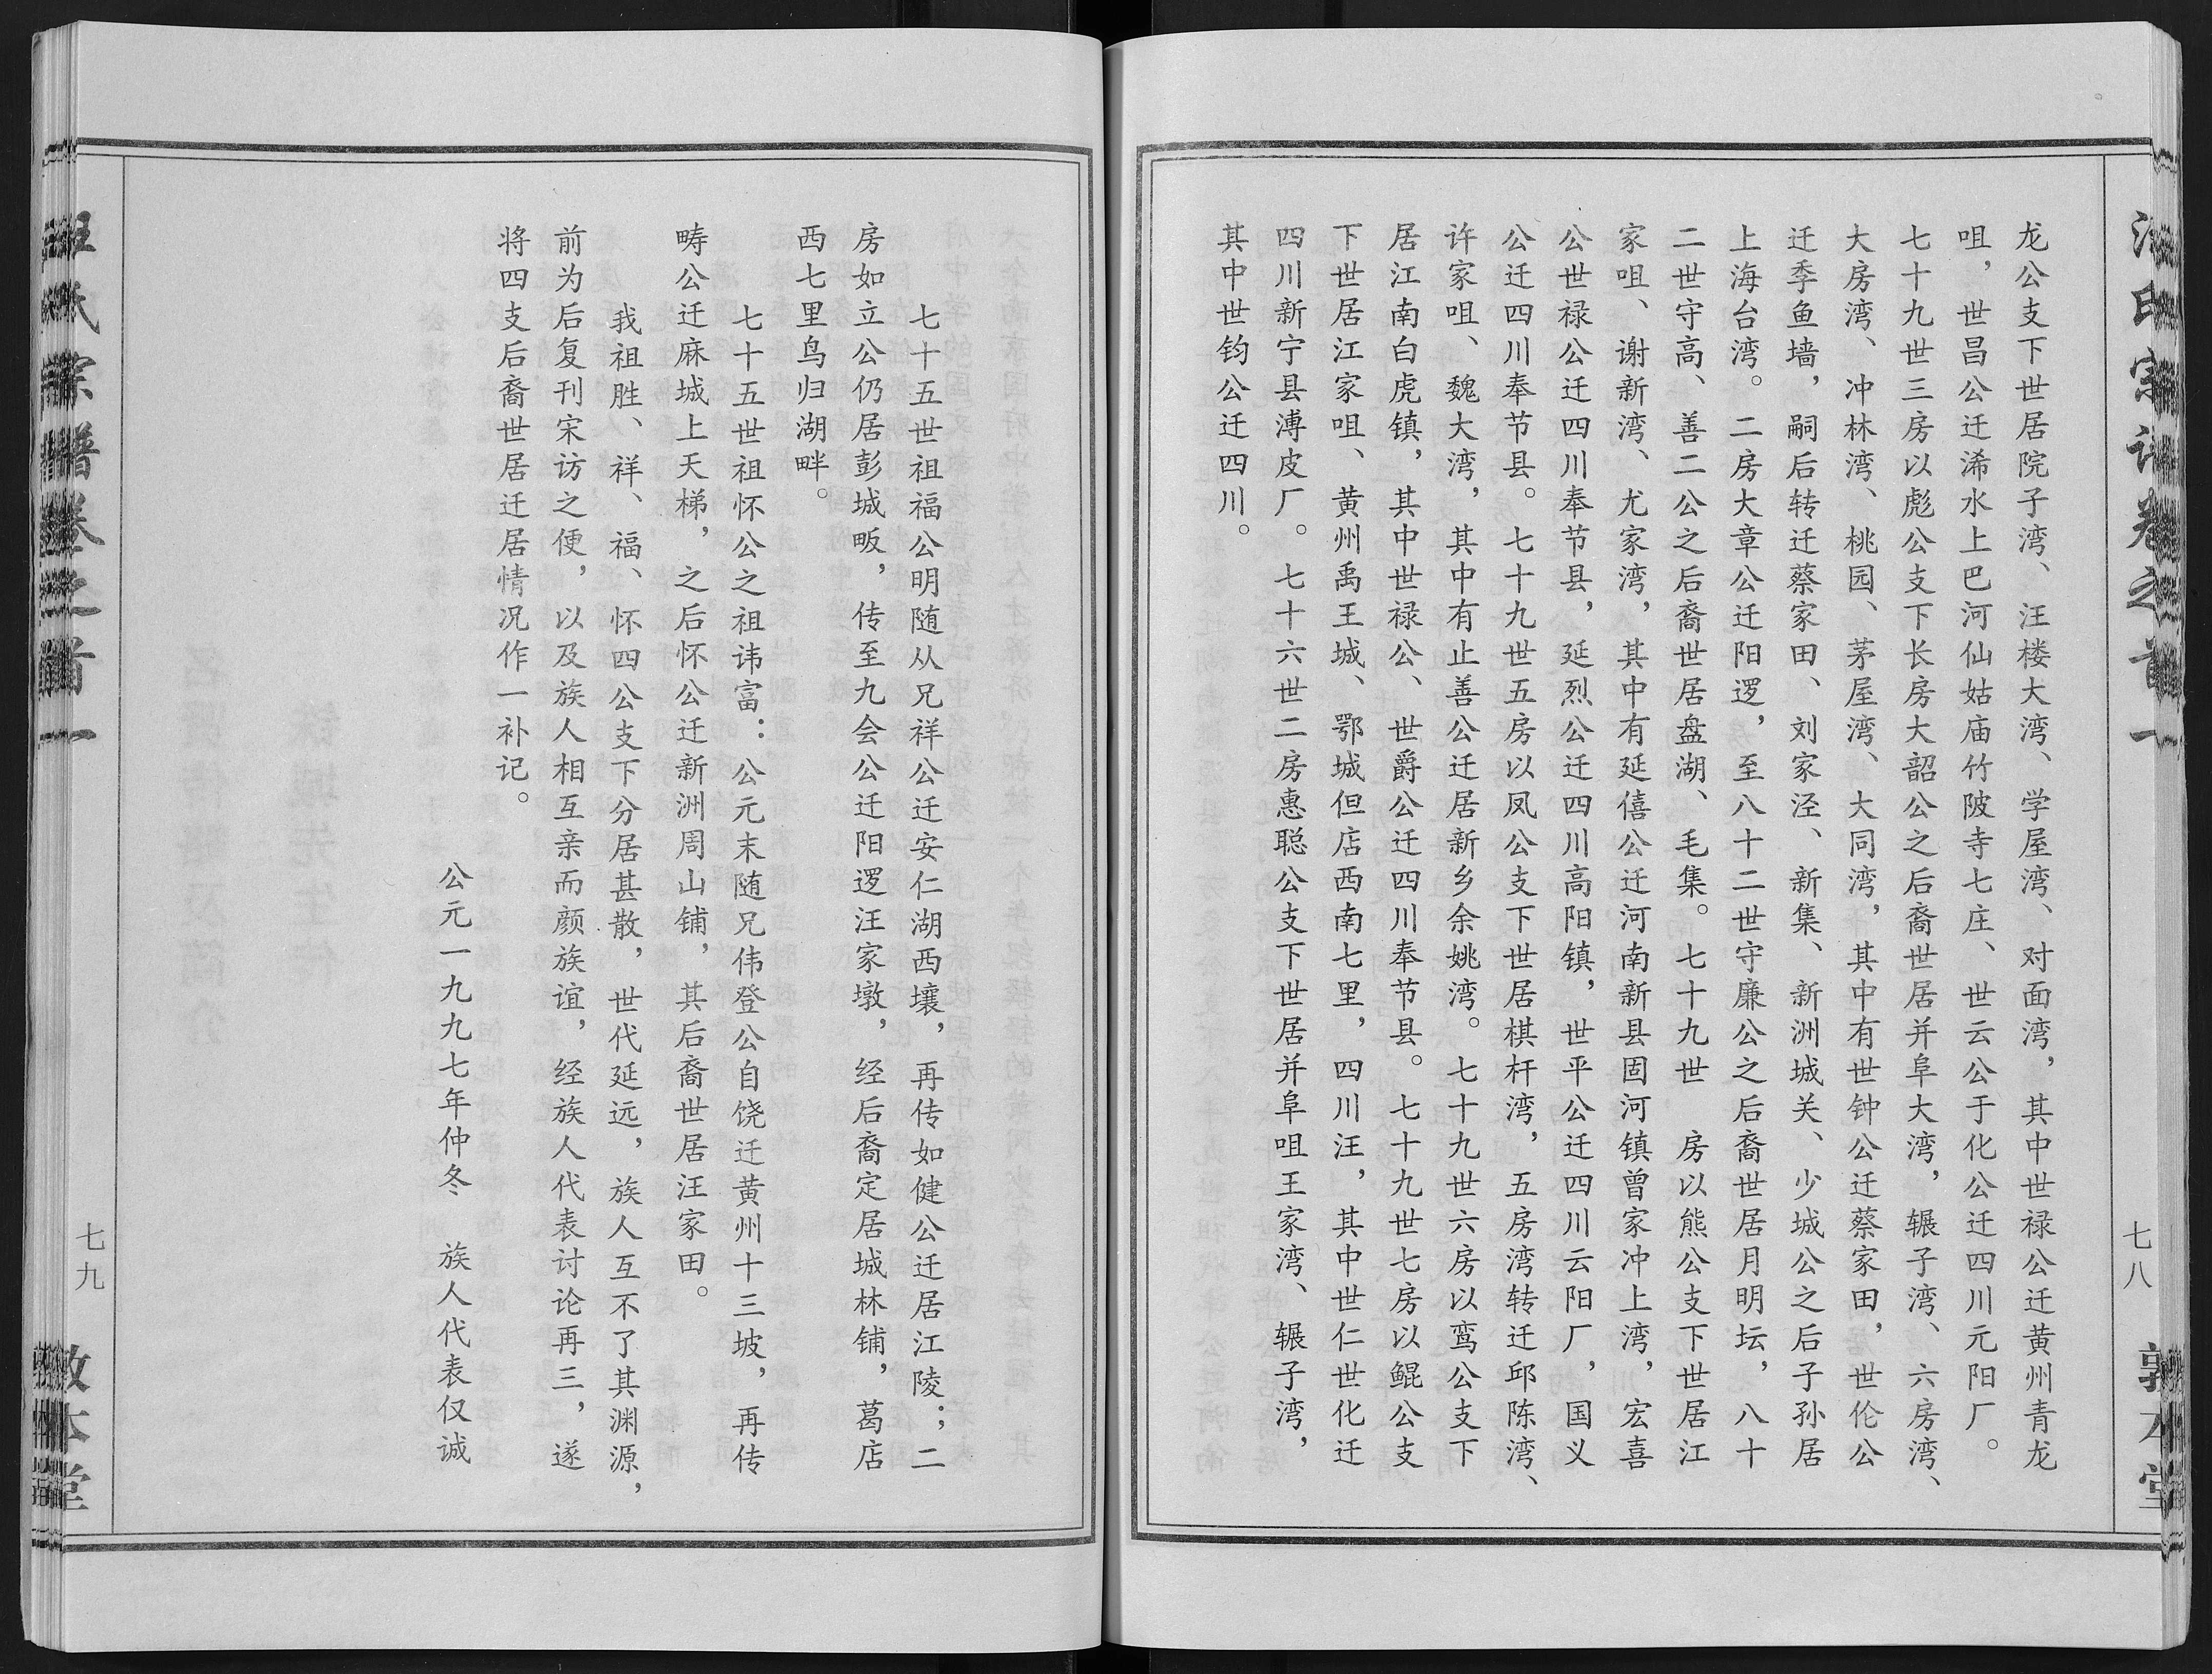 龙公支下世居院子湾、汪楼大湾、学屋湾、对面湾，其中世禄公迁黄州青龙
咀，世昌公迁浠水上巴河仙姑庙竹陂寺七庄、世云公于化公迁四川元阳厂。
七十九世三房以彪公支下长房大韶公之后裔世居并阜大湾，辗子湾、六房湾、
大房湾、冲林湾、桃园、茅屋湾、大同湾，其中有世钟公迁蔡家田，世伦公
迁季鱼墙，嗣后转迁蔡家田、刘家泾、新集、新洲城关、少城公之后子孙居
上海台湾。二房大章公迁阳逻，至八十二世守廉公之后裔世居月明坛，八十
二世守高、善二公之后裔世居盘湖、毛集。七十九世 房以熊公支下世居江
家咀、谢新湾、尤家湾，其中有延僖公迁河南新县固河镇曾家冲上湾，宏喜
公世禄公迁四川奉节县，延烈公迁四川高阳镇，世平公迁四川云阳厂，国义
公迁四川奉节县。七十九世五房以凤公支下世居棋杆湾，五房湾转迁邱陈湾、
许家咀、魏大湾，其中有止善公迁居新乡余姚湾。七十九世六房以鸾公支下
居江南白虎镇，其中世禄公、世爵公迁四川奉节县。七十九世七房以鲲公支
下世居江家咀、黄州禹王城、鄂城但店西南七里，四川汪，其中世仁世化迁
四川新宁县溥皮厂。七十六世二房惠聪公支下世居并阜咀王家湾、辗子湾，
其中世钧公迁四川。
七八
敦本堂
七十五世祖福公明随从兄祥公迁安仁湖西壤，再传如健公迁居江陵；二
房如立公仍居彭城畈，传至九会公迁阳逻汪家墩，经后裔定居城林铺，葛店
西七里鸟归湖畔。
七十五世祖怀公之祖讳富：公元末随兄伟登公自饶迁黄州十三坡，再传
畴公迁麻城上天梯，之后怀公迁新洲周山铺，其后裔世居汪家田。
我祖胜、祥、福、怀四公支下分居甚散，世代延远，族人互不了其渊源，
前为后复刊宋访之便，以及族人相互亲而颜族谊，经族人代表讨论再三，遂
将四支后裔世居迁居情况作一补记。
公元一九九七年仲冬 族人代表仅诚
七九